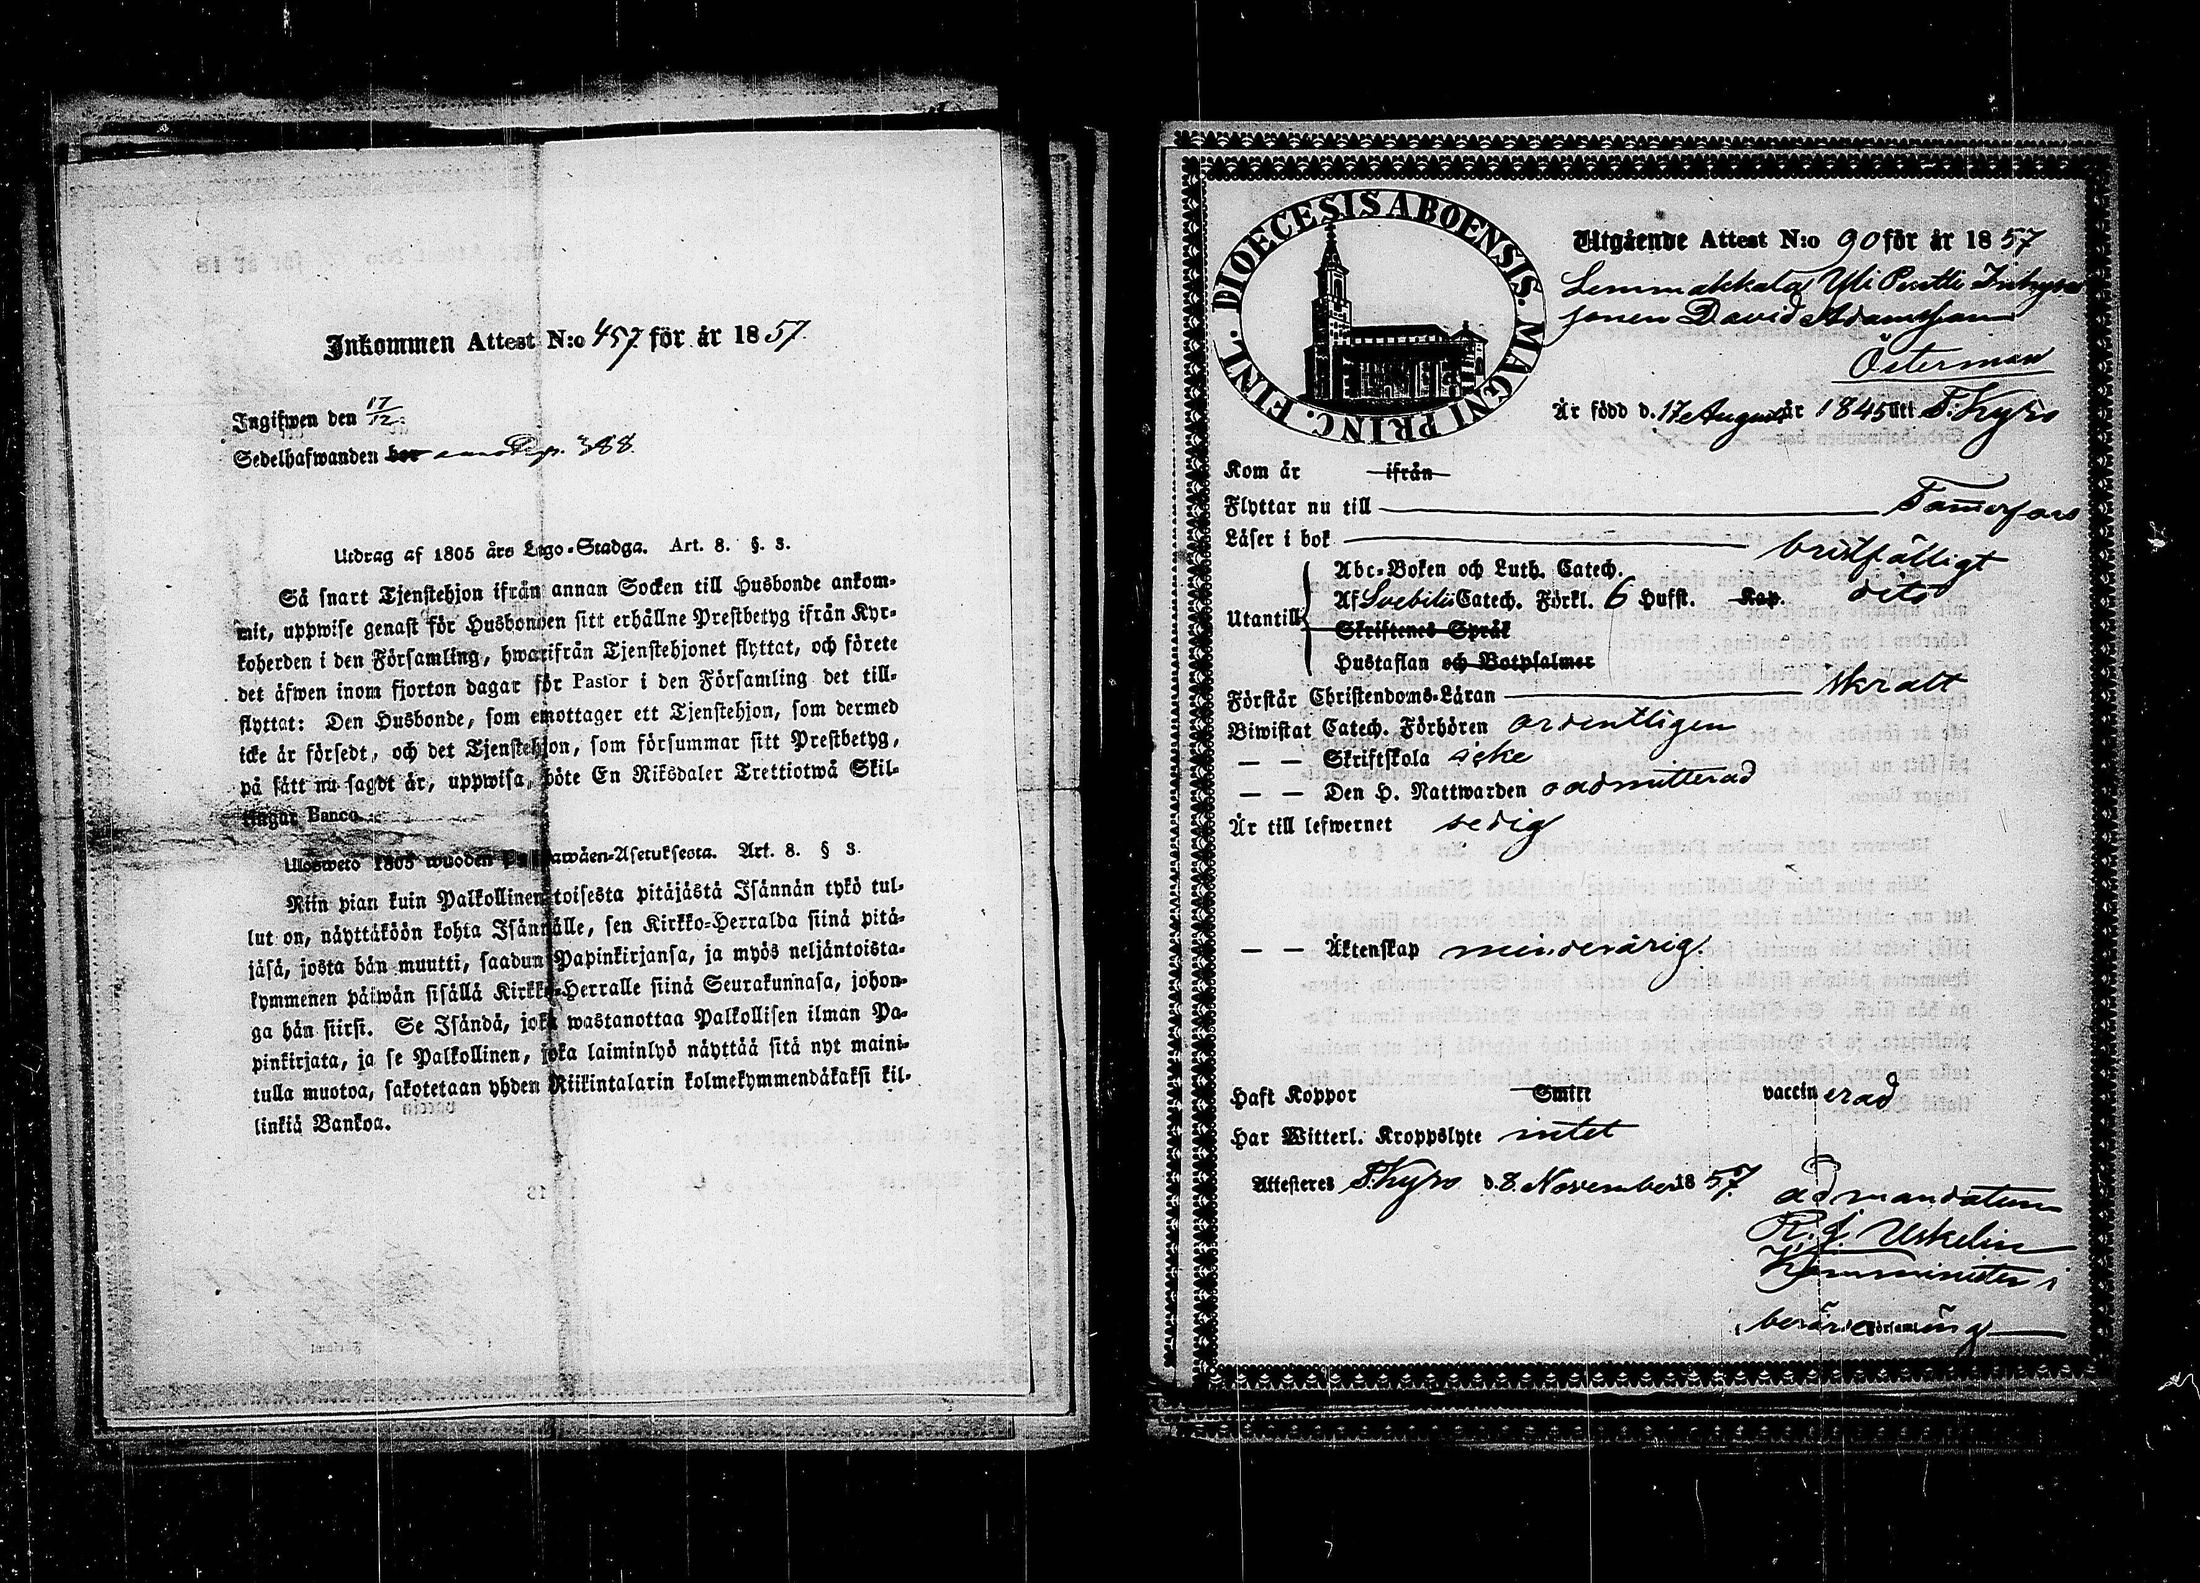 Inkommen Attest N:o 457 för år 1857.
Ingifwen den 17/12.
Sedelhafwanden bor 388.
Utdrag af 1805 års Lego-Stadga. Art. 8. §. 3.
Så snart Tjenstehjon ifrån annan Socken till Husbonde ankom-
mit, uppwise genast för Husbonden sitt erhållne Prestbetyg ifrån Kyr-
koherden i den Församling, hwarifrån Tjenstehjonet flyttat, och förete
det äfwen inom fjorton dagar för Pastor i den Församling det till-
flyttat: Den Husbonde, som emottager ett Tjenstehjon, som dermed
icke är försedt, och det Tjenstehjon, som försummar sitt Prestbetyg,
på sätt nu sagdt är, uppwisa, böte En Riksdaler Trettiotwå Skil-
lingar Banco.
Uloswето 1805 wuoden Palkkawäen-Asetuksesta. Art. 8. § 3.
Niin pian kuin Palkollinen toisesta pitäjästä Isännän tykö tul-
lut on, näyttäköön kohta Isännälle, sen Kirkko-Herralda siinä pitä-
jäsä, josta hän muutti, saadun Papinkirjansa, ja myös neljäntoista-
kymmenen päiwän sisällä Kirkko-Herralle siinä Seurakunnasa, johon-
ga hän siirsi. Se Isändä, joka wastanottaa Palkollisen ilman Pa-
pinkirjata, ja se Palkollinen, joka laiminlyö näyttää sitä nyt maini-
tulla muotoa, sakotetaan yhden Riikintalarin kolmekymmendäkaksi kil-
linkiä Bankoa.
DIOECESIS ABOENSIS. MAGNI PRINC. FINL.
Utgående Attest N:o 90 för år 1857
Lemmakkala Yli Penttli Inhyses
sonen David Adamsson
Österman
Är född d. 17e Augusti år 1845 uti T. Kyro
Kom år ifrån
Flyttar nu till Tam̄erfors
Läser i bok bristfälligt
Abc-Boken och Luth. Catech.
Utantill Af Svebilii Catech. Förkl. 6 Hufst. Kap. dito
Skriftenes Språk
Hustaflan och Botpsalmer
Förstår Christendoms-Läran skralt
Biwistat Catech. Förhören ordentligen
— — Skriftskola icke
— — Den H. Nattwarden oadmitterad
Är till lefwernet sedig
— — Äktenskap minderårig
Haft Koppor Smitt vaccinerad
Har Witterl. Kroppslyte intet
Attesteres T. Kyro d. 8. November 1857.
ad mandatum
R. J. Uskelin
Komminister i
berörde församling